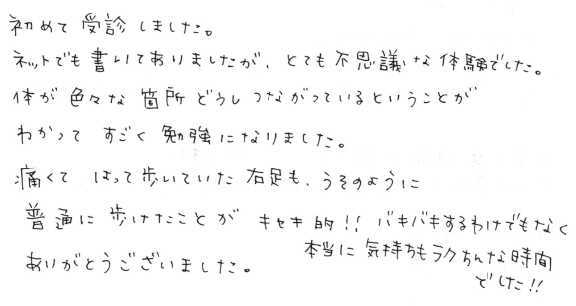 初めて受診しました。
ネットでも書いてありましたが、とても不思議な体験でした。
体が色々な箇所どうしつながっているということが
わかって すごく勉強になりました。
痛くて はって歩いていた右足も、うそのように
普通に歩けたことが キセキ的!! バキバキするわけでもなく
本当に気持ちもラクちんな時間
でした!!
ありがとうございました。